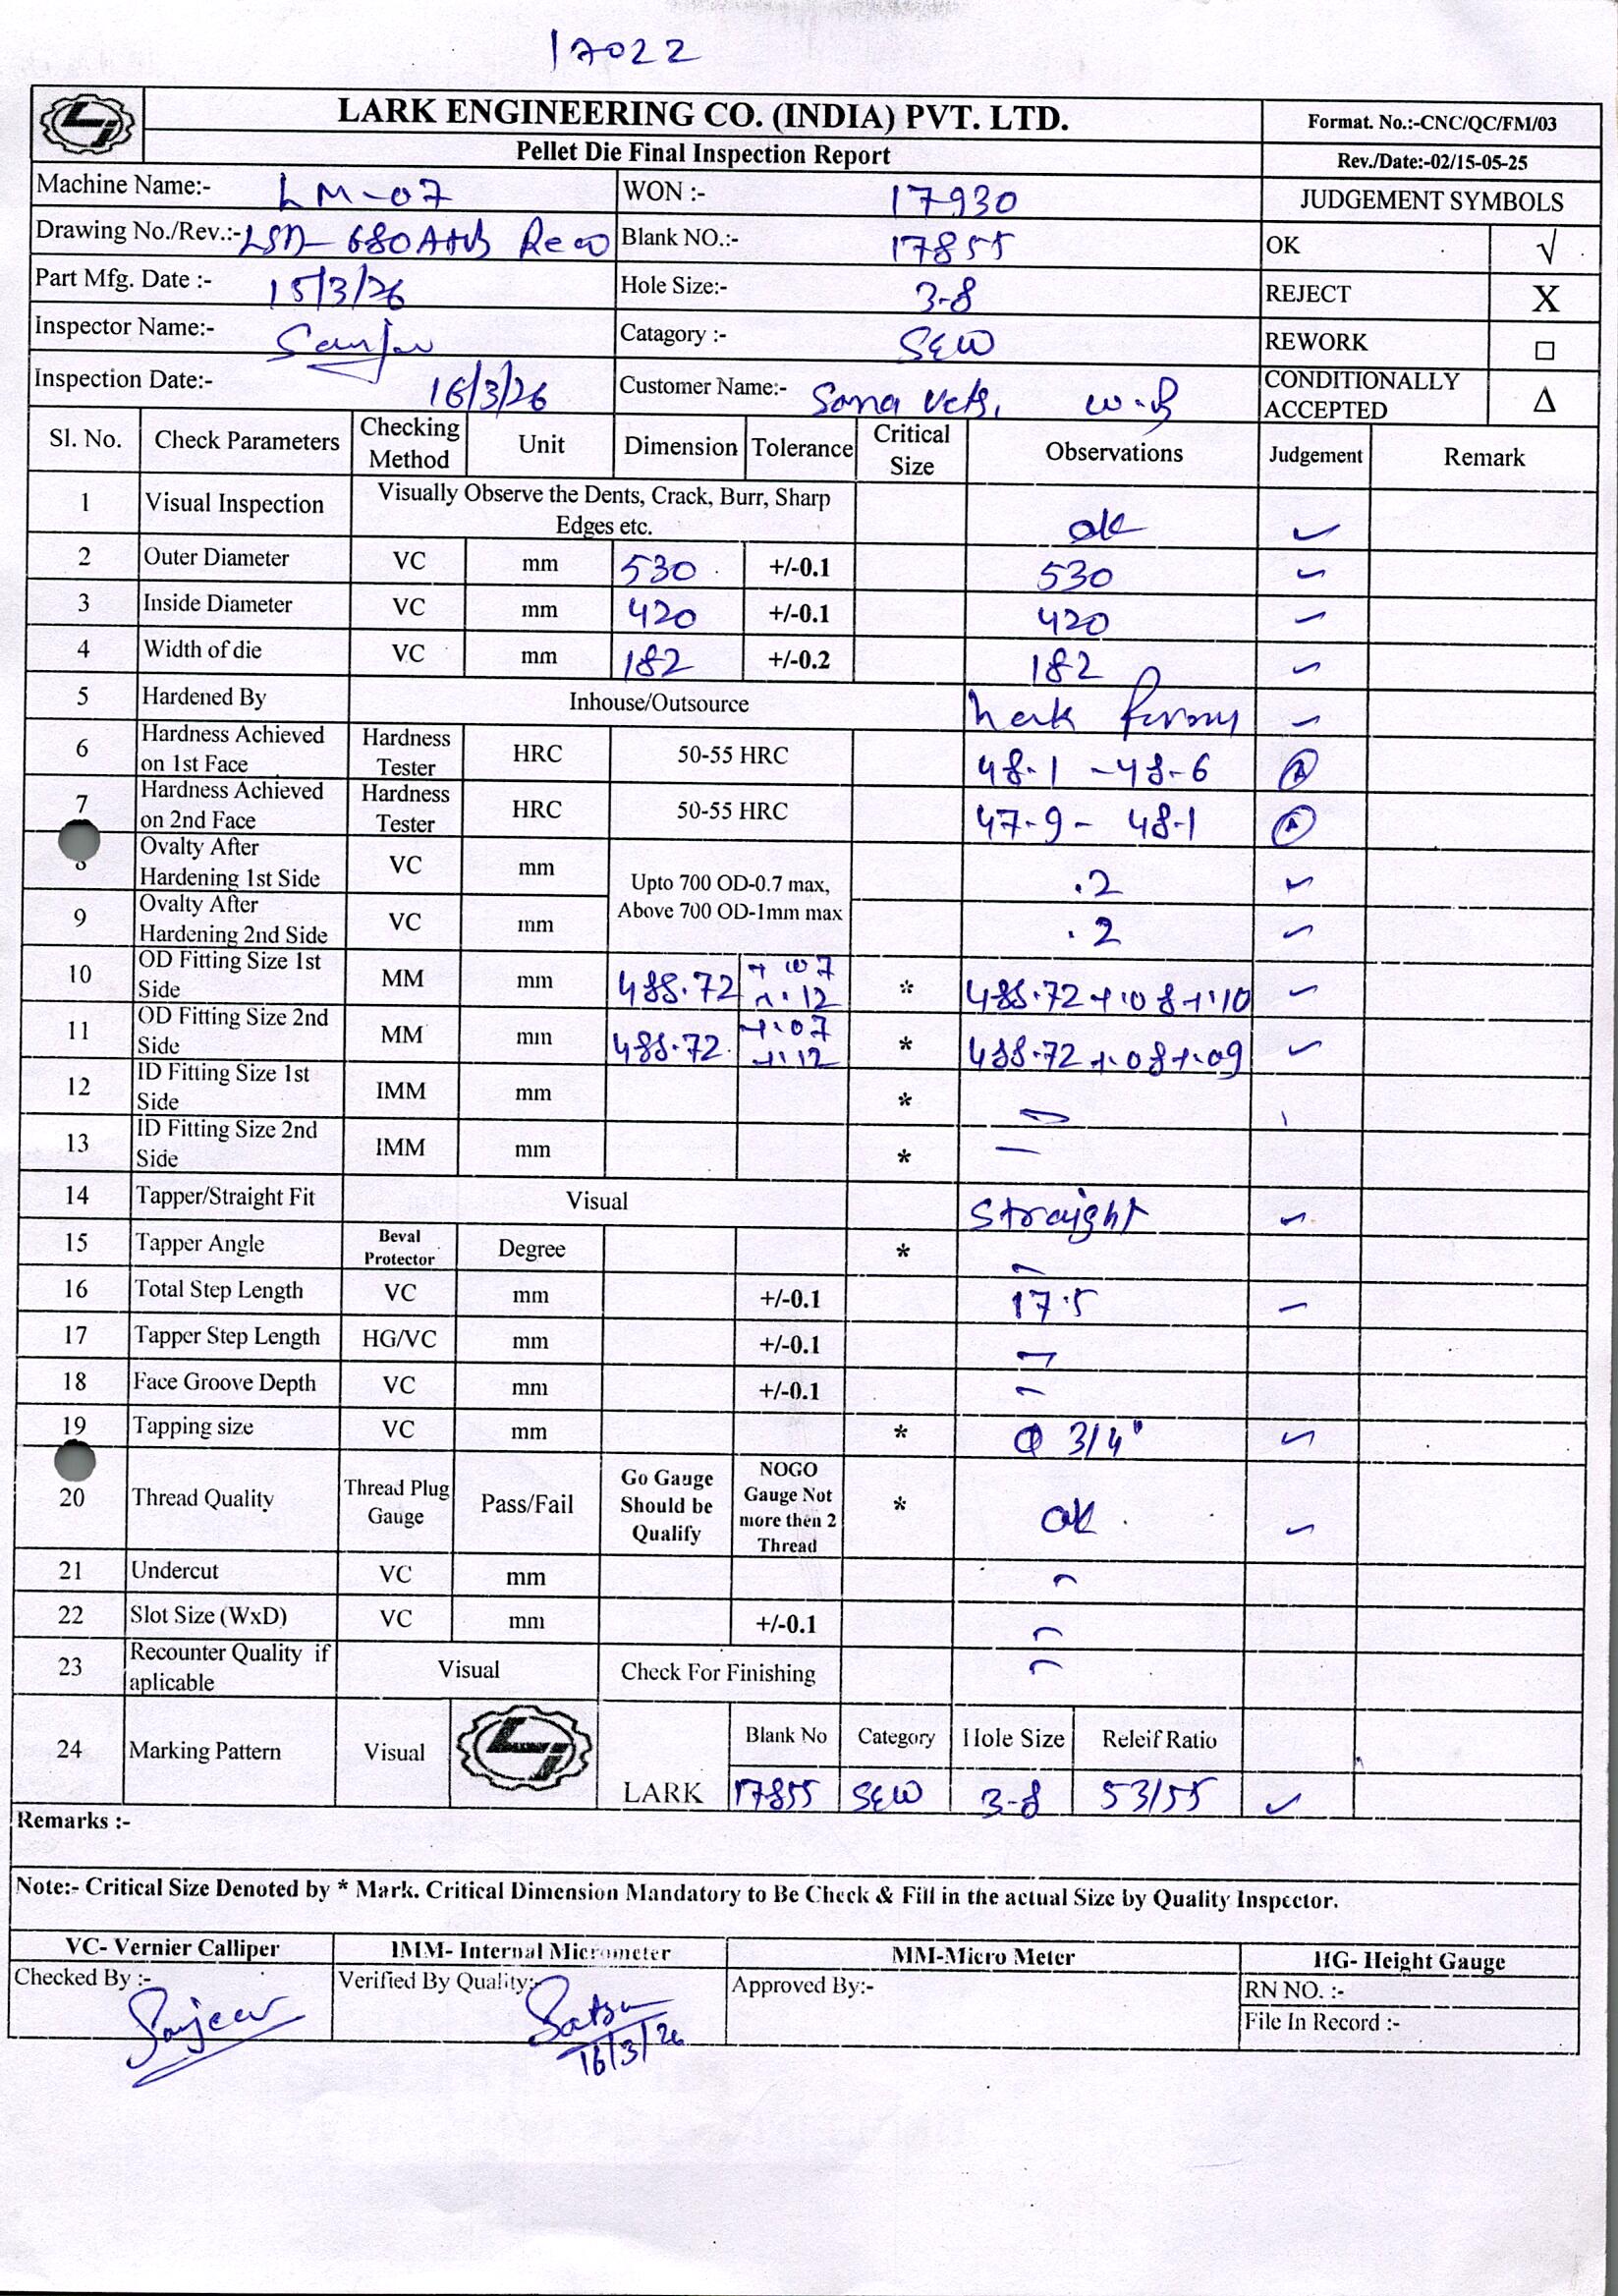 17022
LARK ENGINEERING CO. (INDIA) PVT. LTD.
Format. No.:-CNC/QC/FM/03
Pellet Die Final Inspection Report
Rev./Date:-02/15-05-25
Machine Name:- LM-07 WON :- 17930 JUDGEMENT SYMBOLS
Drawing No./Rev.:- 680 Blank NO.:- 17855 OK √
Part Mfg. Date :- 15/3/26 Hole Size:- 3-8 REJECT X
Inspector Name:- Catagory :- SEW REWORK □
Inspection Date:- 16/3/26 Customer Name:- Sona Vets, W.B CONDITIONALLY ACCEPTED Δ
Sl. No. Check Parameters Checking Method Unit Dimension Tolerance Critical Size Observations Judgement Remark
1 Visual Inspection Visually Observe the Dents, Crack, Burr, Sharp Edges etc. ok ✓
2 Outer Diameter VC mm 530 +/-0.1 530 ✓
3 Inside Diameter VC mm 420 +/-0.1 420 ✓
4 Width of die VC mm 182 +/-0.2 182 ✓
5 Hardened By Inhouse/Outsource ✓
6 Hardness Achieved on 1st Face Hardness Tester HRC 50-55 HRC 48.1 - 48.6
7 Hardness Achieved on 2nd Face Hardness Tester HRC 50-55 HRC 47.9 - 48.1
8 Ovalty After Hardening 1st Side VC mm Upto 700 OD-0.7 max, Above 700 OD-1mm max .2 ✓
9 Ovalty After Hardening 2nd Side VC mm .2 ✓
10 OD Fitting Size 1st Side MM mm 488.72 +.07 +.12 * 488.72 +.08 +.10 ✓
11 OD Fitting Size 2nd Side MM mm 488.72 +.07 +.12 * 488.72 +.08 +.09 ✓
12 ID Fitting Size 1st Side IMM mm * -
13 ID Fitting Size 2nd Side IMM mm * -
14 Tapper/Straight Fit Visual Straight ✓
15 Tapper Angle Beval Protector Degree * -
16 Total Step Length VC mm +/-0.1 17.5 ✓
17 Tapper Step Length HG/VC mm +/-0.1 -
18 Face Groove Depth VC mm +/-0.1 -
19 Tapping size VC mm * 3/4" ✓
20 Thread Quality Thread Plug Gauge Pass/Fail Go Gauge Should be Qualify NOGO Gauge Not more then 2 Thread * ok ✓
21 Undercut VC mm -
22 Slot Size (WxD) VC mm +/-0.1 -
23 Recounter Quality if aplicable Visual Check For Finishing -
24 Marking Pattern Visual LARK Blank No Category Hole Size Releif Ratio
17855 SEW 3-8 53/55 ✓
Remarks :-
Note:- Critical Size Denoted by * Mark. Critical Dimension Mandatory to Be Check & Fill in the actual Size by Quality Inspector.
VC- Vernier Calliper IMM- Internal Micrometer MM-Micro Meter HG- Height Gauge
Checked By :- Sanjeev Verified By Quality:- 16/3/26 Approved By:- RN NO. :-
File In Record :-